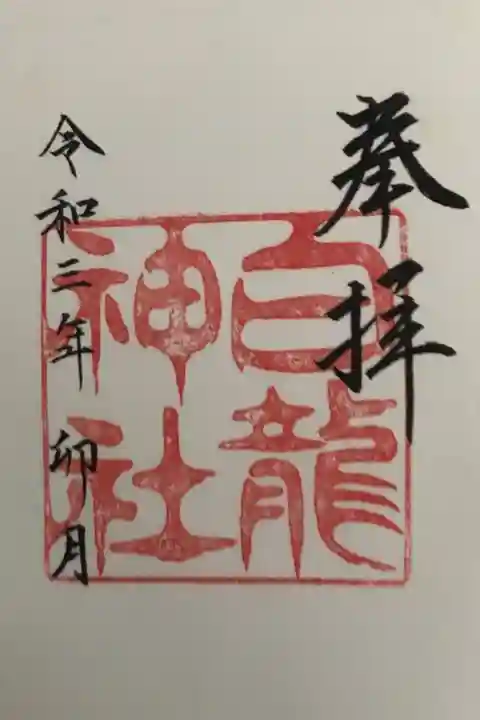 奉拝
白龍
神社
令和三年 卯月